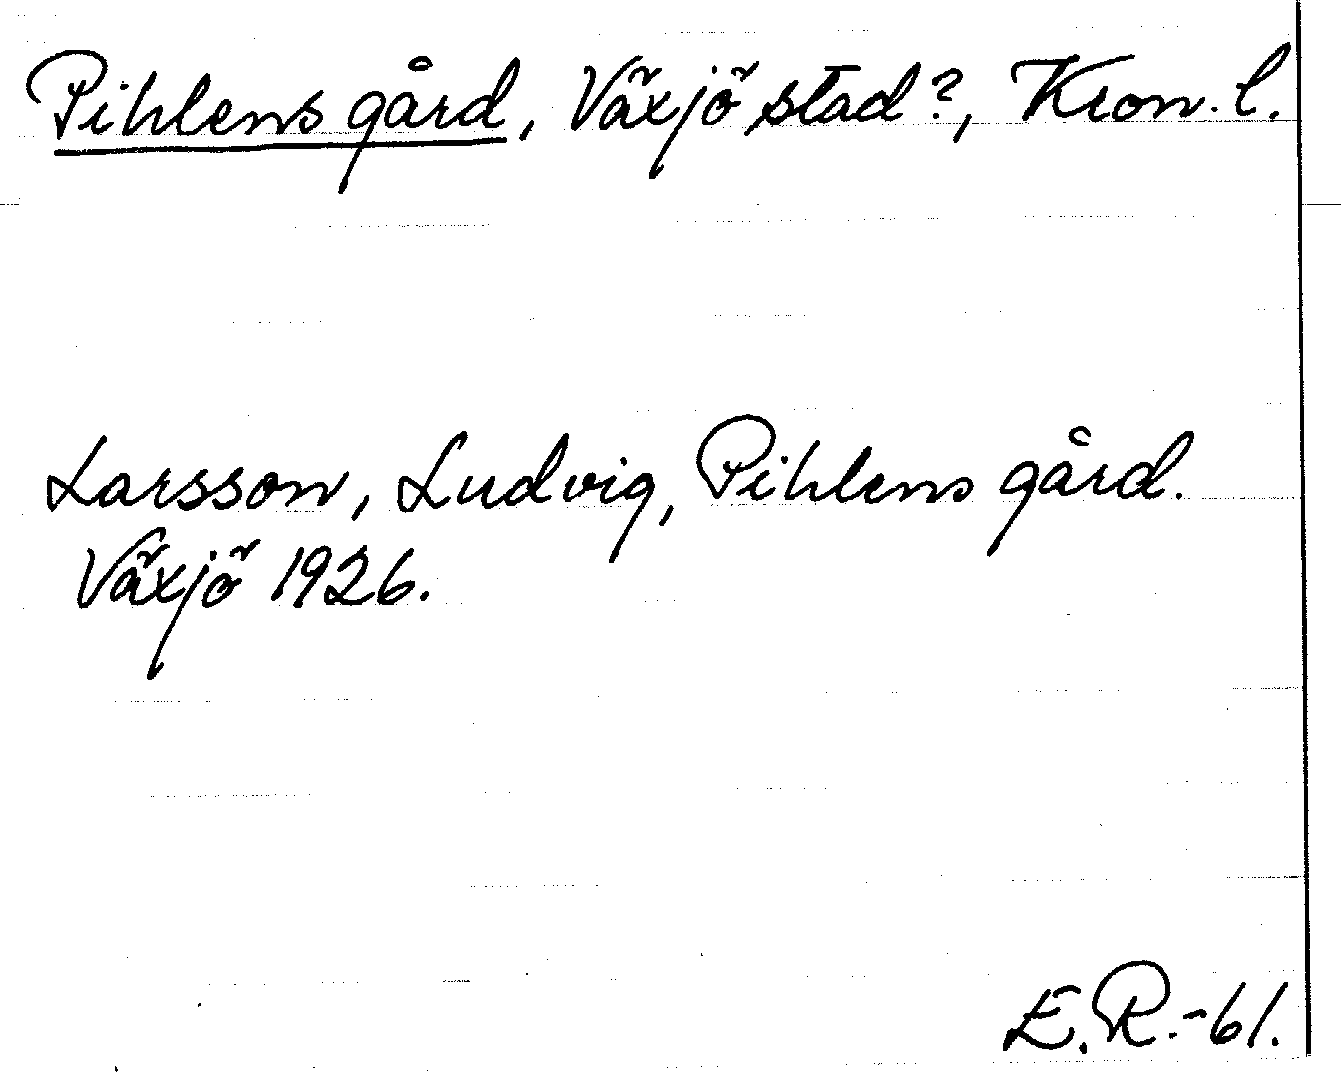 Pihlens gård, Växjö stad?, Kron. l.
Larsson, Ludvig, Pihlens gård.
Växjö 1926.
E.R.-61.